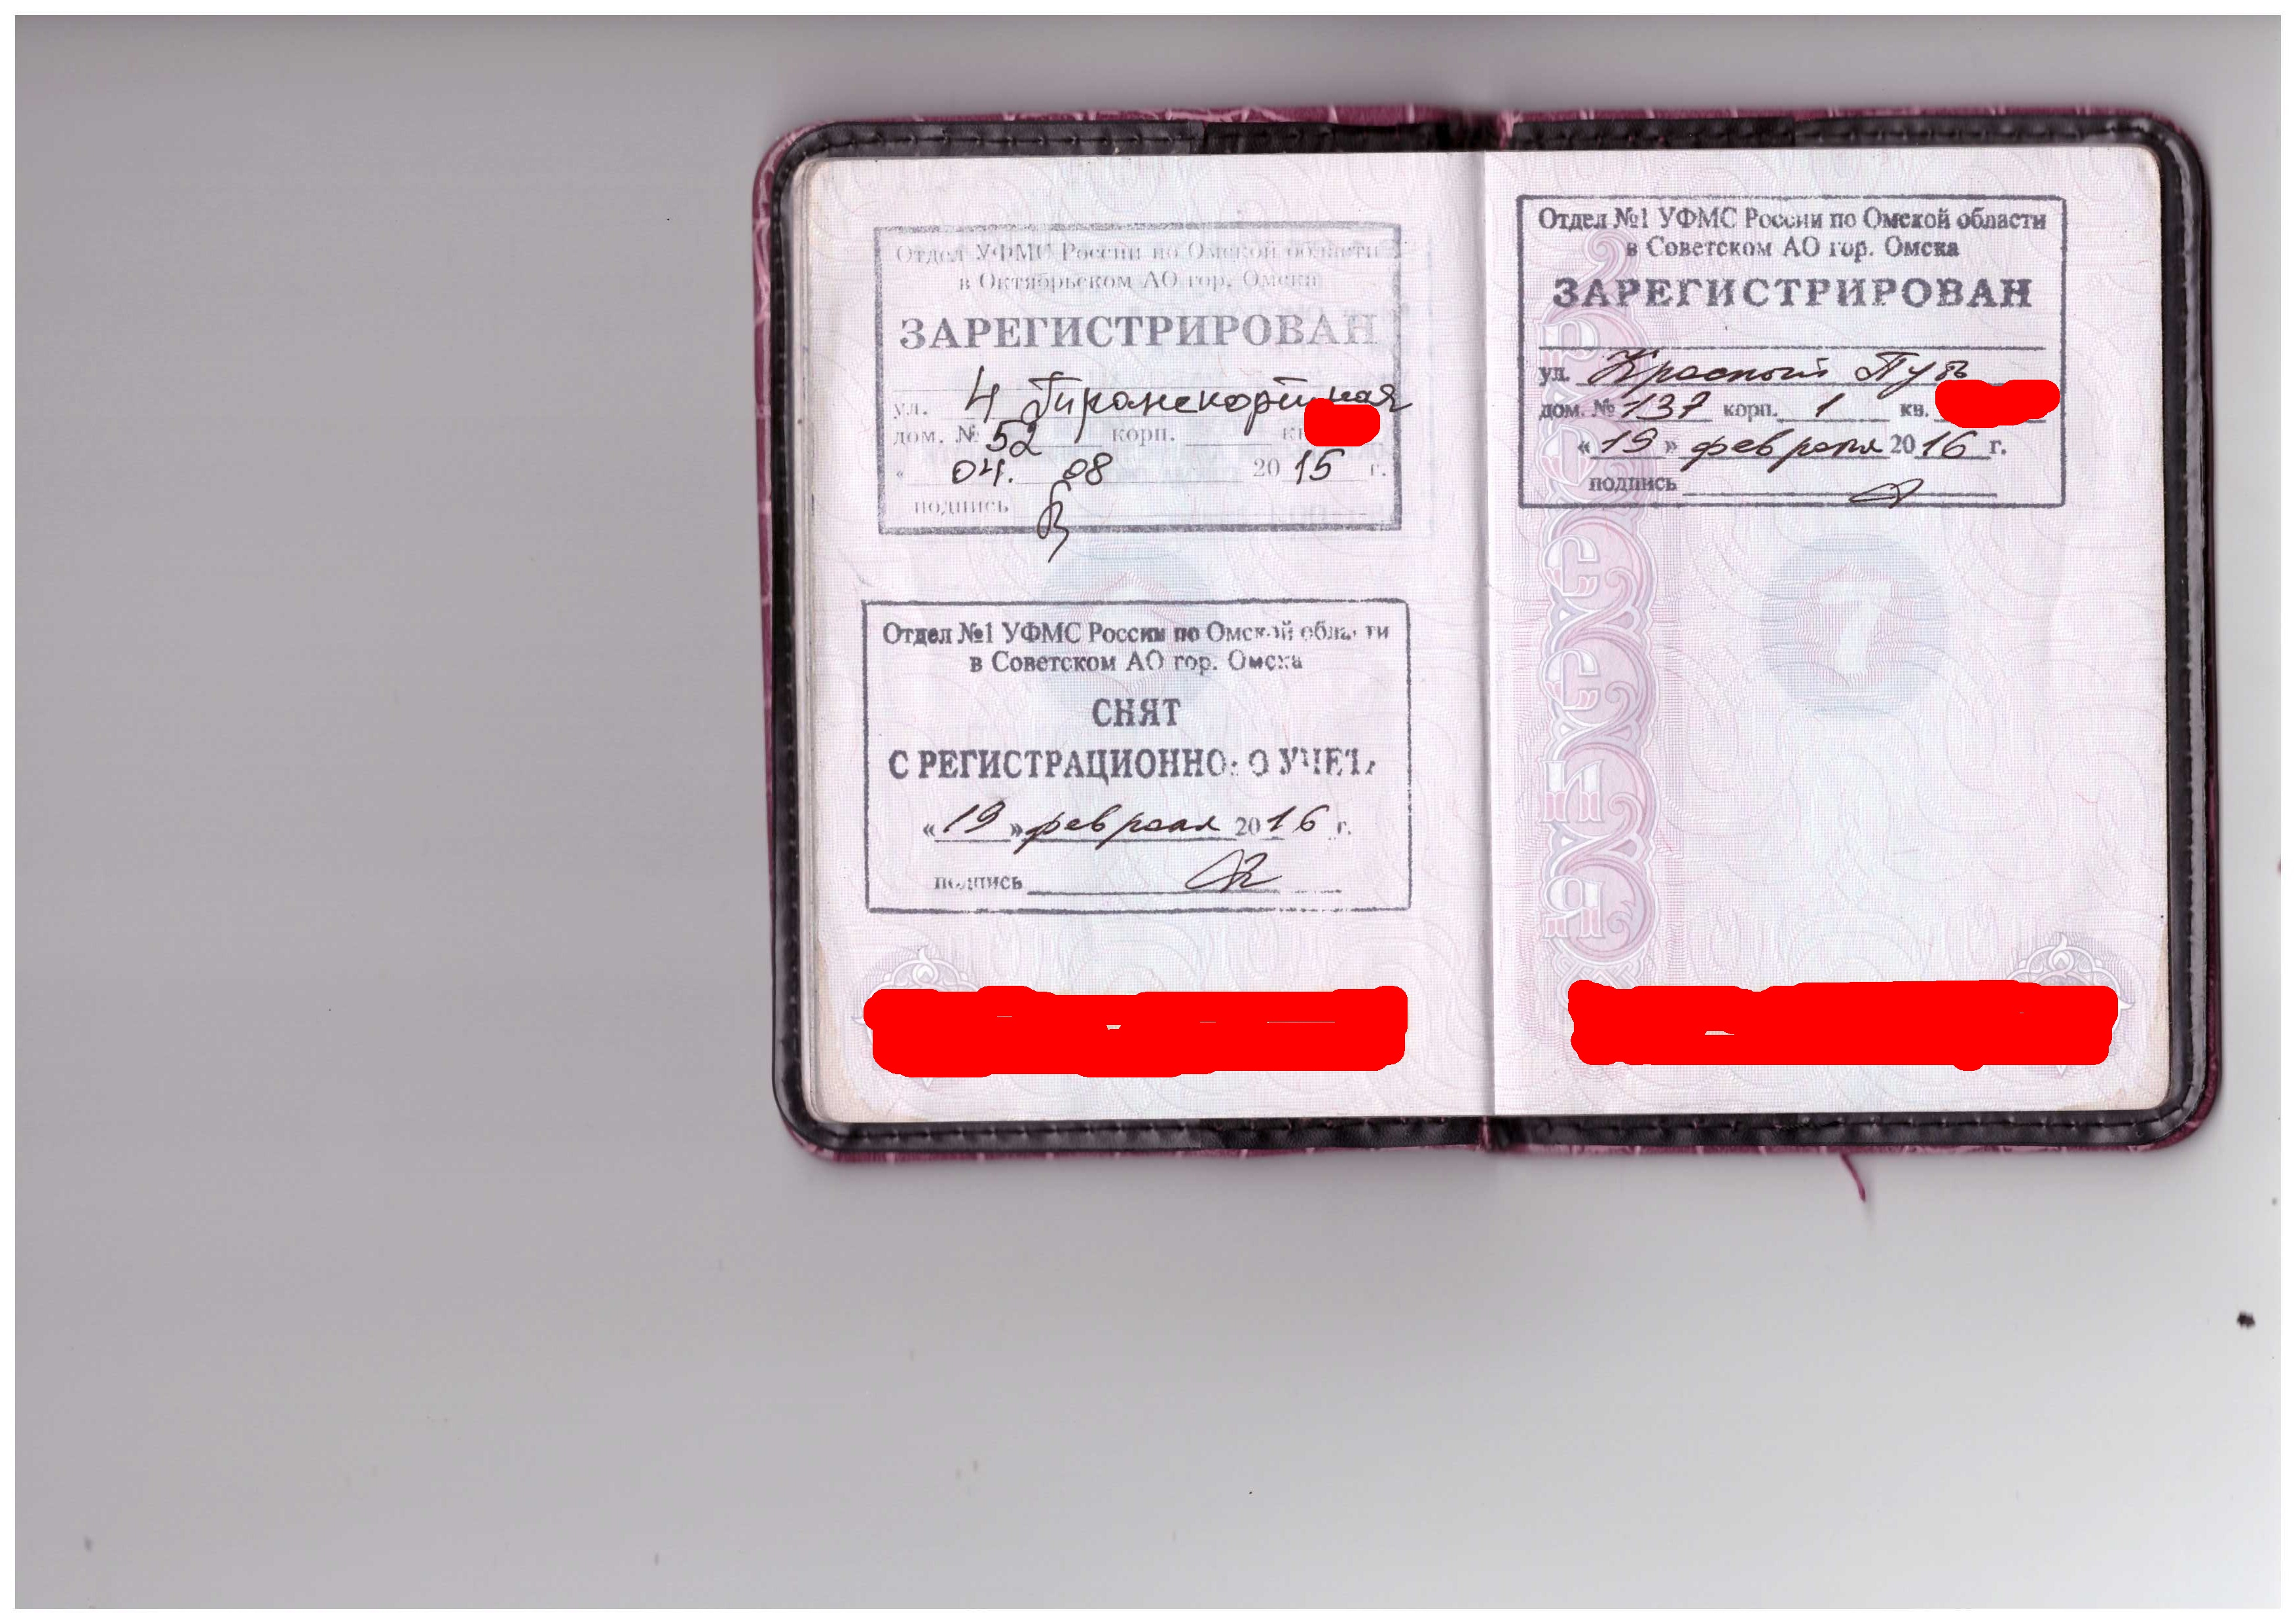 Отдел УФМС России по Омской области
в Октябрьском АО гор. Омска
ЗАРЕГИСТРИРОВАН
ул. 4 Транспортная
дом. № 52 корп.
« 04. 08 2015 г.
подпись
Отдел №1 УФМС России по Омской области
в Советском АО гор. Омска
СНЯТ
С РЕГИСТРАЦИОННОГО УЧЕТА
«19» февраля 2016 г.
подпись
Отдел №1 УФМС России по Омской области
в Советском АО гор. Омска
ЗАРЕГИСТРИРОВАН
ул. Красный Путь
дом. № 137 корп. 1 кв.
«19» февраля 2016 г.
подпись